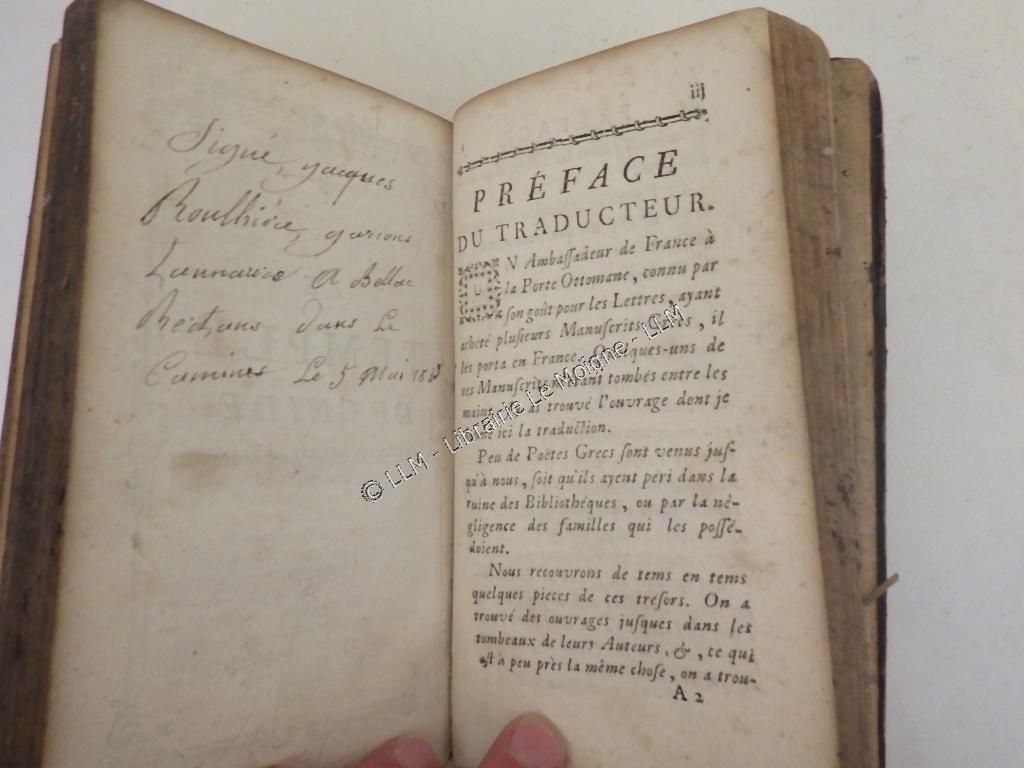 Signé, jacques
Roulhière, garcons
A Bellac
dans Le
Le 5 Mai
iij
PRÉFACE
DU TRADUCTEUR.
UN Ambaſſadeur de France à
la Porte Ottomane, connu par
ſon goût pour les Lettres, ayant
acheté pluſieurs Manuſcrits Grecs, il
les porta en France. Quelques-uns de
ces Manuſcrits m'étant tombés entre les
mains, j'y ai trouvé l'ouvrage dont je
ici la traduction.
Peu de Poëtes Grecs ſont venus juſ-
qu'à nous, ſoit qu'ils ayent péri dans la
ruine des Bibliothéques, ou par la né-
gligence des familles qui les poſſé-
doient.
Nous recouvrons de tems en tems
quelques pieces de ces tréſors. On a
trouvé des ouvrages juſques dans les
tombeaux de leurs Auteurs, &, ce qui
eſt à peu près la même choſe, on a trou-
A 2
© LLM - Librairie Le Moigne - LLM